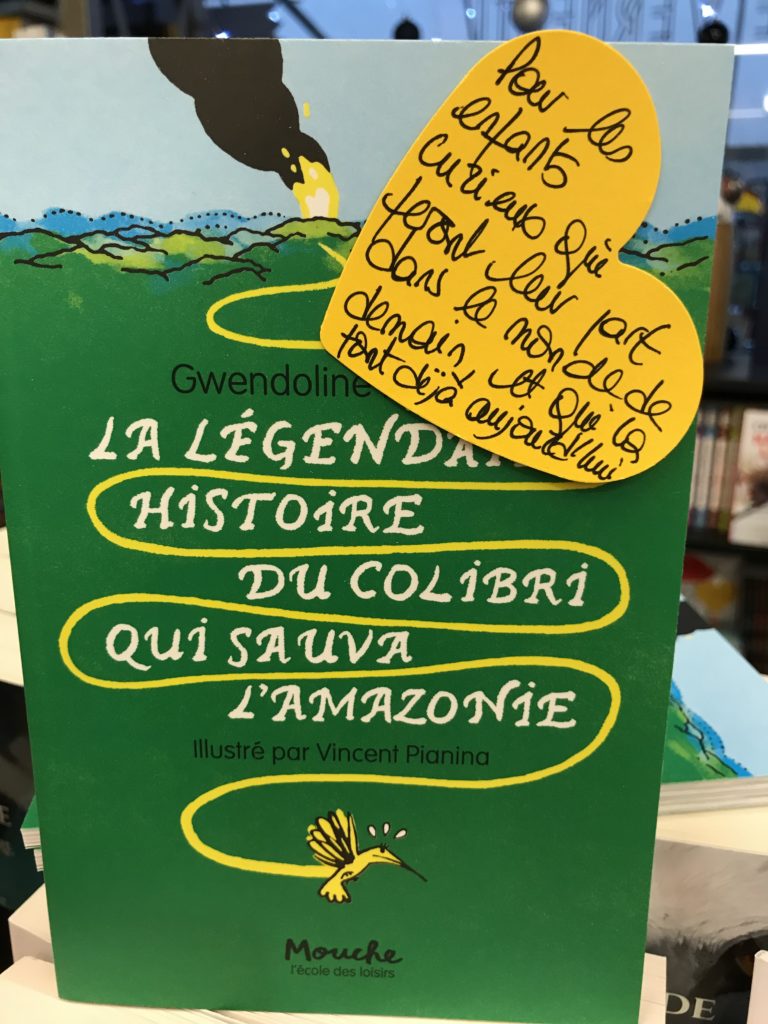 Pour les
enfants
curieux qui
feront leur part
dans le monde de
demain et qui la
font déjà aujourd'hui
Gwendoline
LA LÉGENDAI
HISTOIRE
DU COLIBRI
QUI SAUVA
L'AMAZONIE
Illustré par Vincent Pianina
Mouche
l'école des loisirs
DE